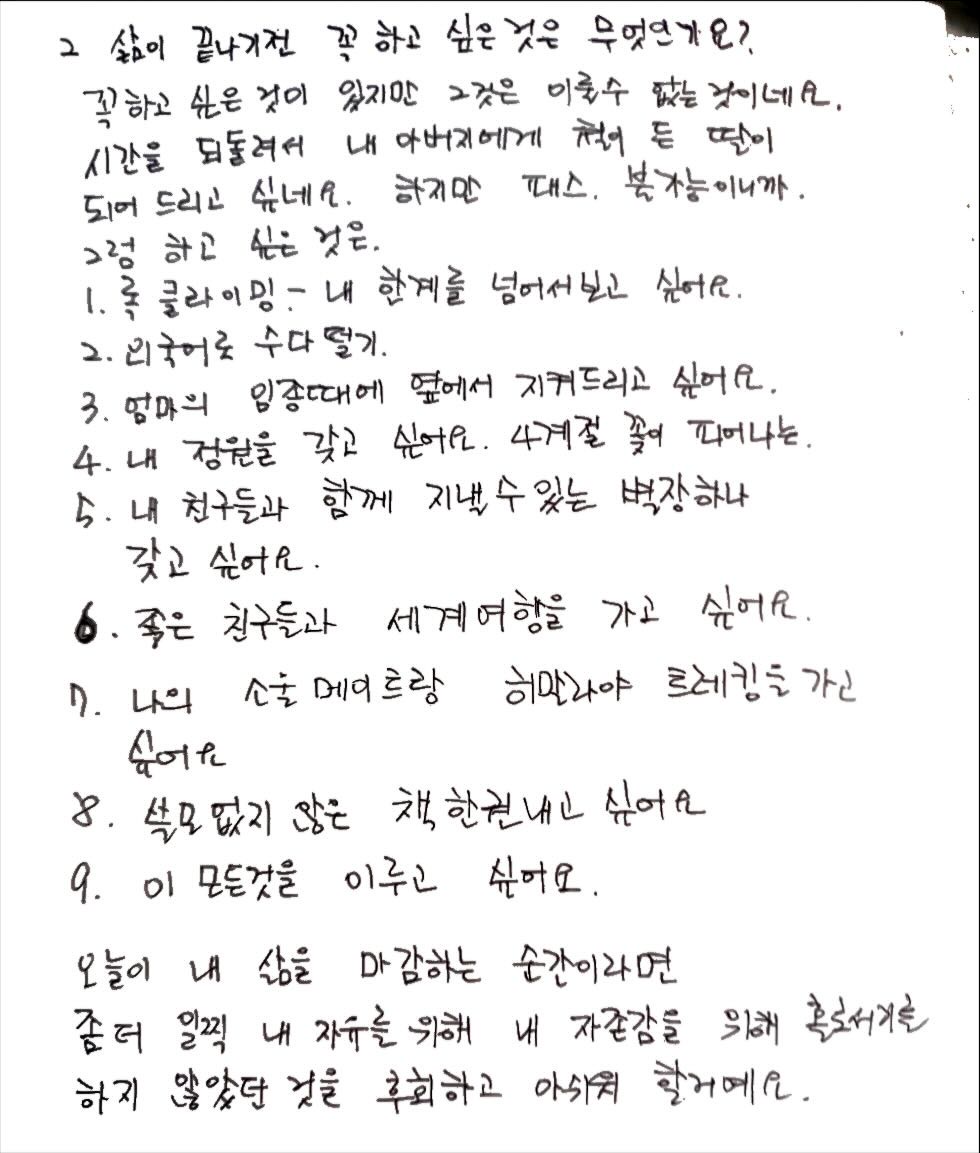 2 삶이 끝나기전 꼭 하고 싶은것은 무엇인가요?
꼭 하고 싶은 것이 있지만 그것은 이룰수 없는 것이네요.
시간을 되돌려서 내 아버지에게 철이 든 딸이
되어 드리고 싶네요. 하지만 패스. 불가능이니까.
그럼 하고 싶은 것은.
1. 록 클라이밍 - 내 한계를 넘어서보고 싶어요.
2. 외국어로 수다 떨기.
3. 엄마의 임종때에 옆에서 지켜드리고 싶어요.
4. 내 정원을 갖고 싶어요. 4계절 꽃이 피어나는.
5. 내 친구들과 함께 지낼 수 있는 별장하나
갖고 싶어요.
6. 좋은 친구들과 세계여행을 가고 싶어요.
7. 나의 소울메이트랑 히말라야 트레킹을 가고
싶어요
8. 쓸모 없지 않은 책 한권 내고 싶어요
9. 이 모든것을 이루고 싶어요.
오늘이 내 삶을 마감하는 순간이라면
좀 더 일찍 내 자유를 위해 내 자존감을 위해 홀로서기를
하지 않았던 것을 후회하고 아쉬워 할거예요.